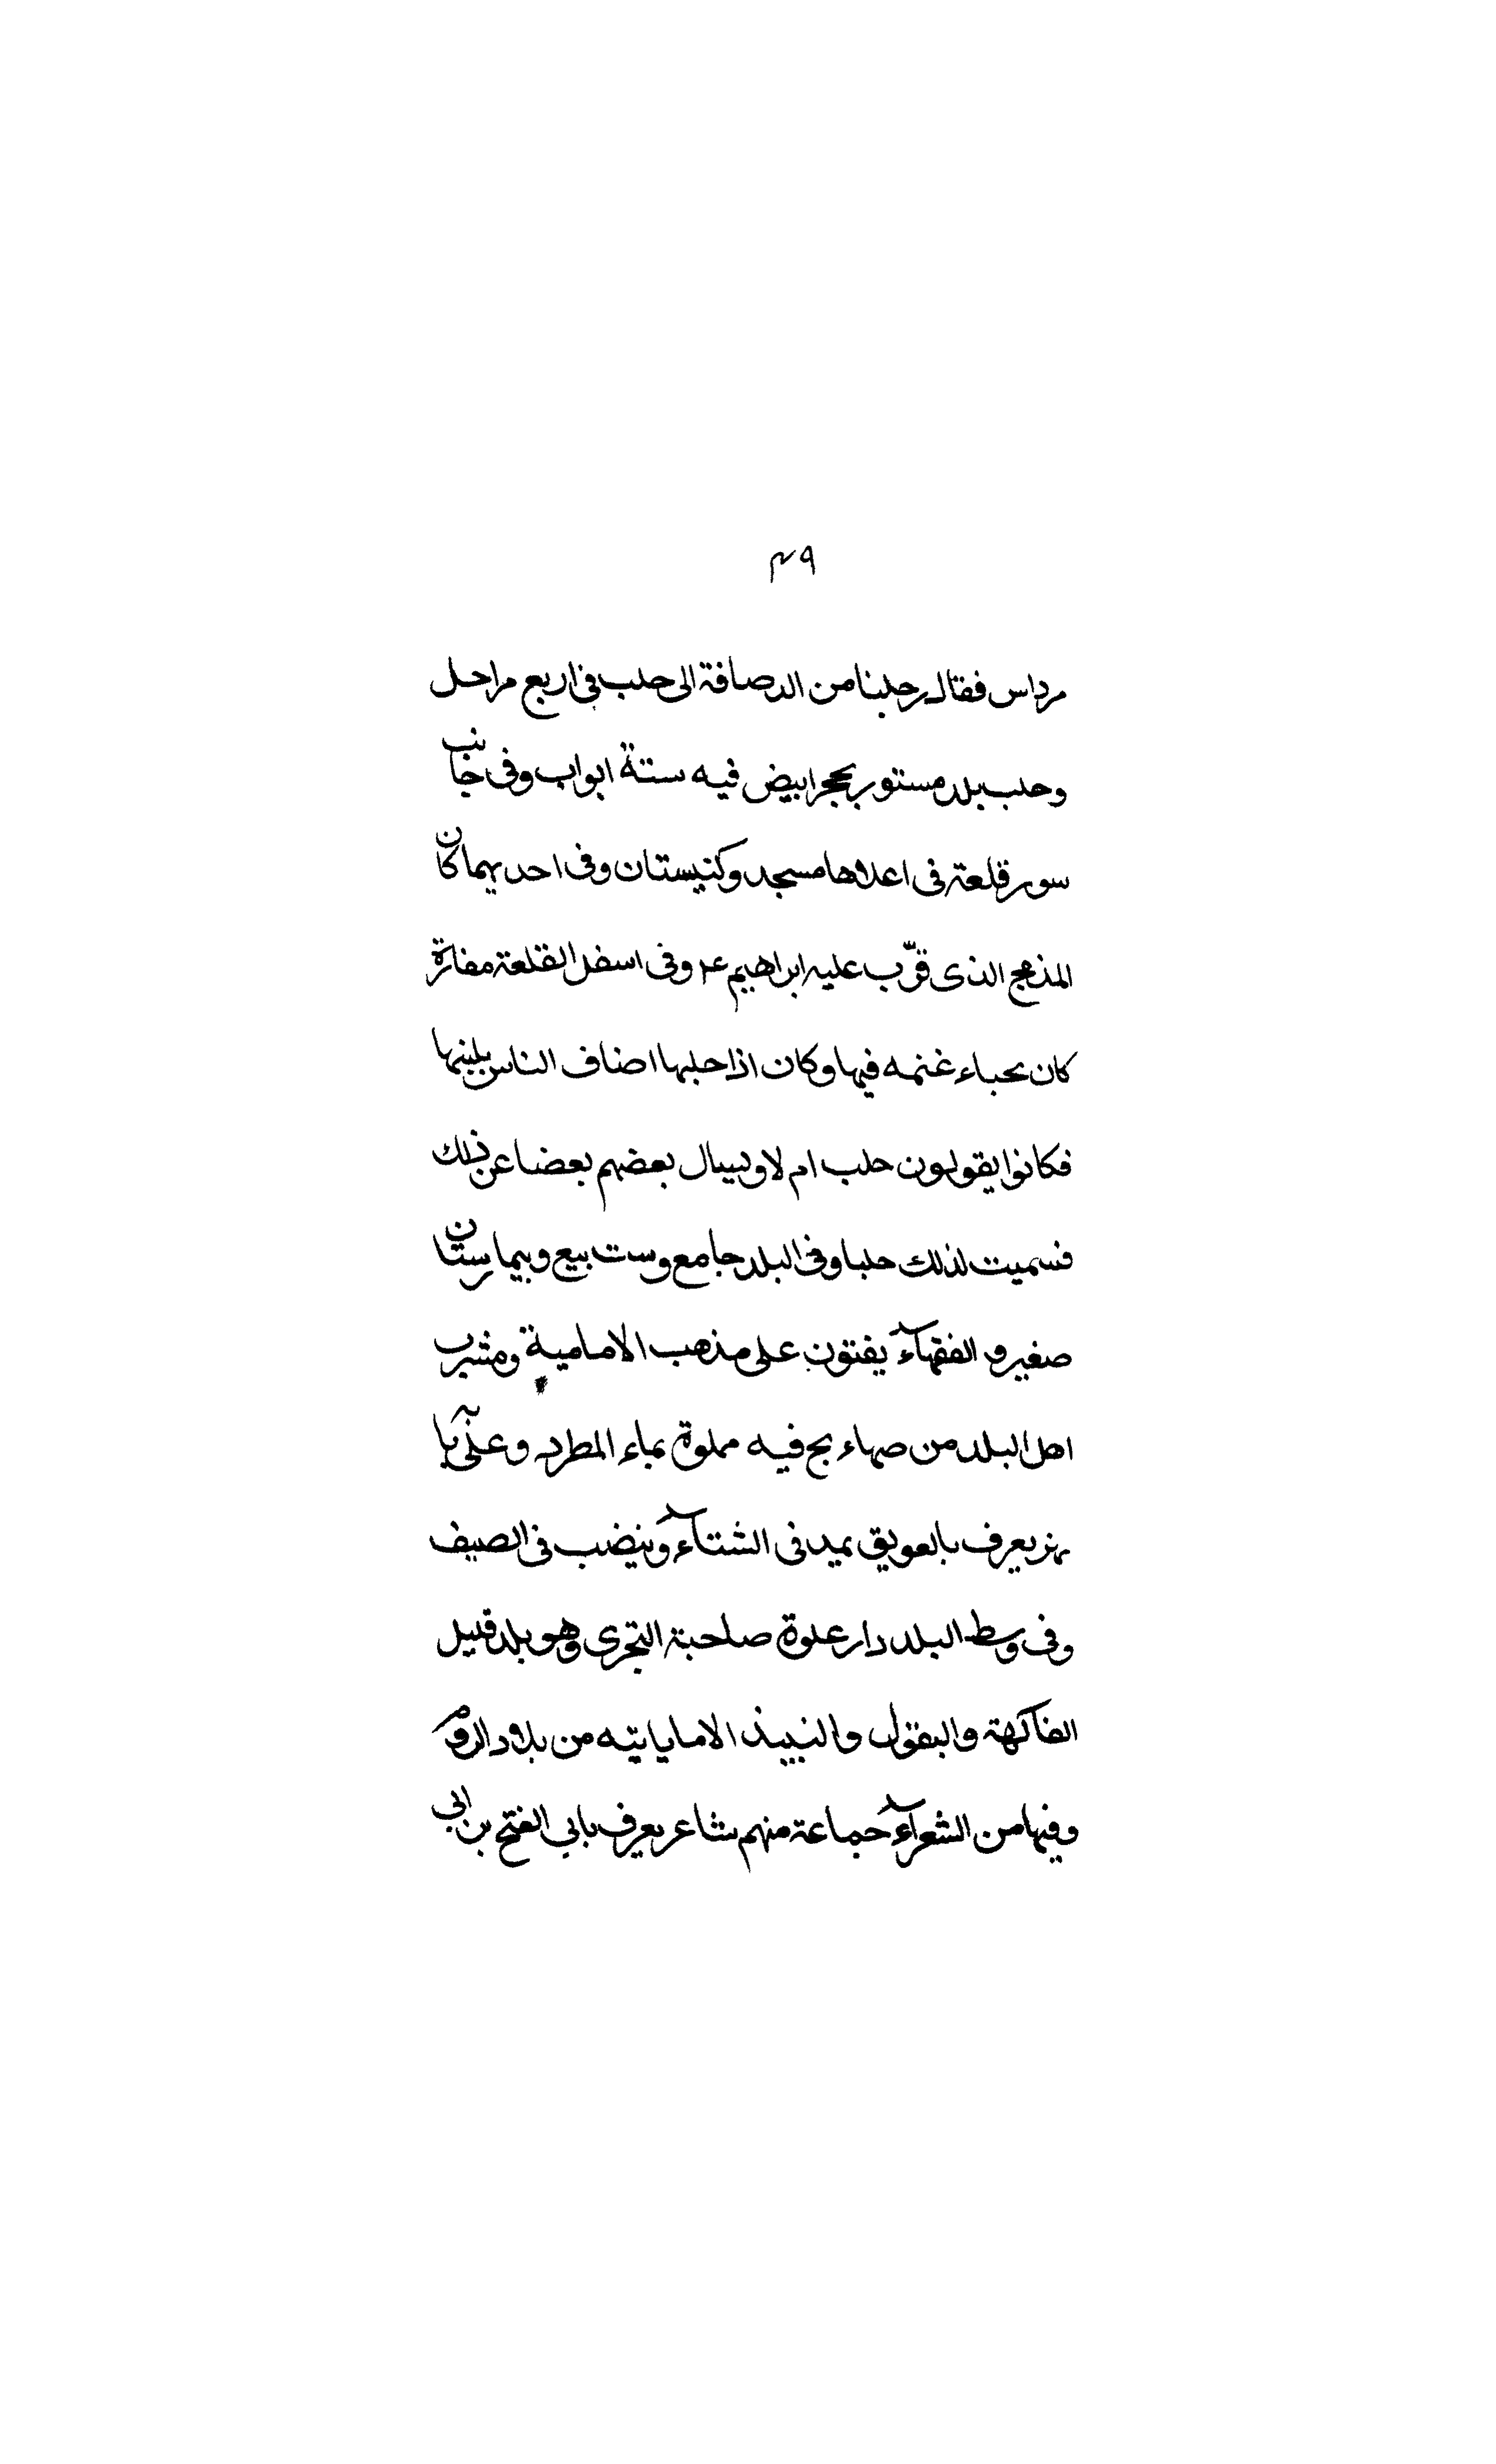 ٤٩
مرداس فقال رحلنا من الرصافة الى حلب فى اربع مراحل
وحلب بلد مستور بحجر ابيض فيه ستة ابواب وفى جانب
سور قلعة فى اعلاها مسجد وكنيستان وفى احديهما كان
المذبح الذى قرّب عليه ابراهيم عم وفى اسفل القلعة مغارة
كان يحباء غنمه فيها وكان اذا حلبها اضاف الناس بلبنها
فكانوا يقولون حلب ام لا ويسال بعضهم بعضا عن ذلك
فسميت لذلك حلبا وفى البلد جامع وست بيع وبيمارستان
صغير والفقهآء يفتون على مذهب الامامية ومشرب
اهل البلد من صهاء بج فيه مملوة بماء المطر وعلى بابها
نهر يعرف بالعويق يمد فى الشتآء وينضب فى الصيف
وفى وسط البلد دار علوة صاحبة البحرى وهو بلد قليل
الفاكهة والبقول والنبيذ الا ماياتيه من بلاد الروم
وفيها من الشعرآء جماعة منهم شاعر يعرف بابي الفتح بن ابى